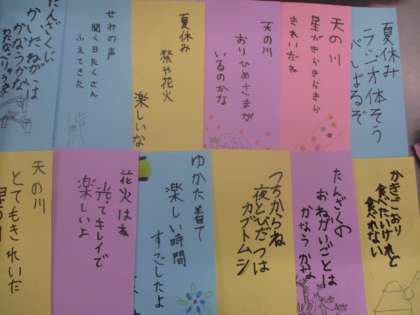 夏休み
ラジオ体そう
がんばるぞ
天の川
星がきらきらきら
きれいだね
天の川
おりひめさまが
いるのかな
夏休み
祭や花火
楽しいな
せみの声
聞く日たくさん
ふえてきた
たんざくに
かいたねがいは
かなうかな
かきごおり
食べたいけれど
食れない
たんざくの
おねがいごとは
かなうかな
つちからね
夜とびだつは
カブトムシ
ゆかた着て
楽しい時間
すごしたよ
花火はね
光てキレイで
楽しいよ
天の川
とてもきれいだ